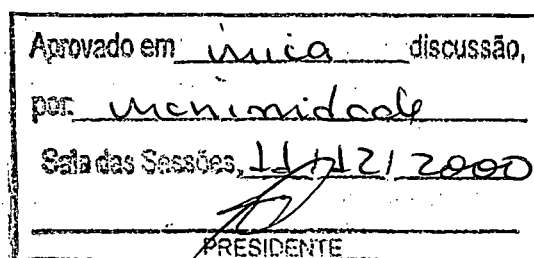 Aprovado em única discussão,
por: unanimidade
Sala das Sessões, 11/12/2000
PRESIDENTE